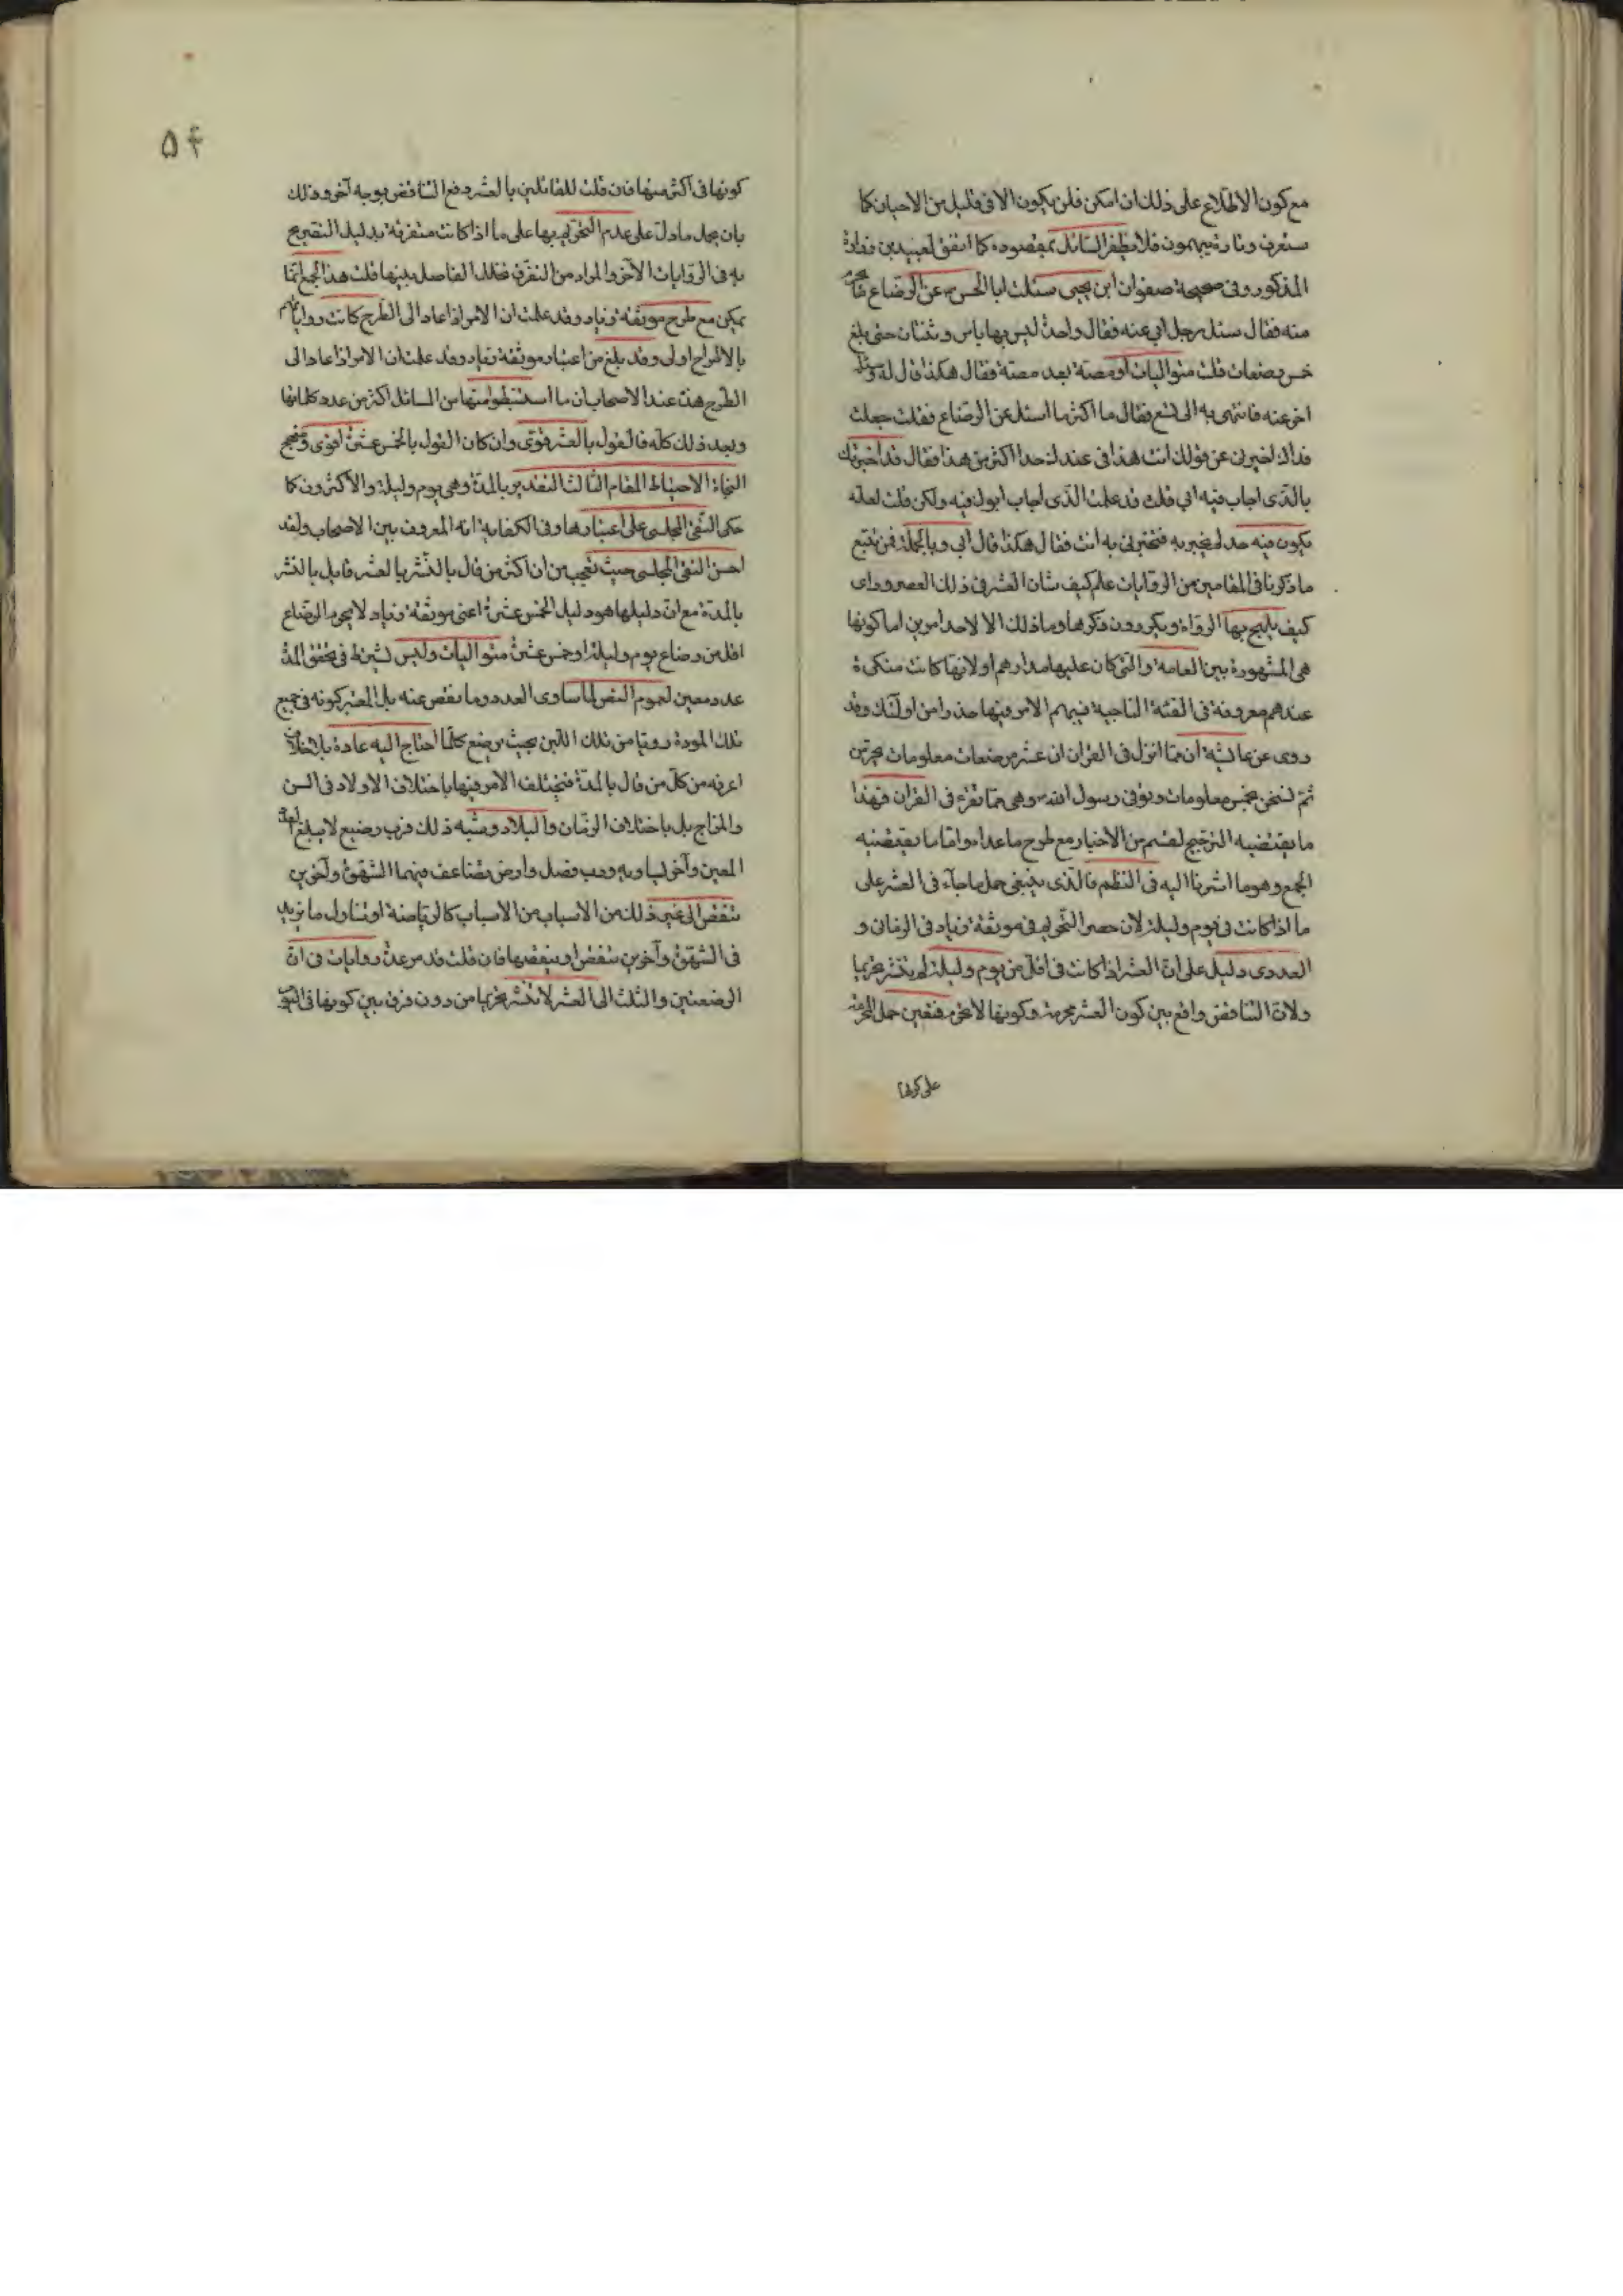 مع كون الاطلاع على ذلك ان امكن فلن يكون الا فى قليل من الاحيان كما
ستعرف وتارة يبهمون فلا يظفر السائل بمقصوده كما اتفق لعبيد بن
المذكور وفى صحيحة صفوان ابن يحيى سئلت ابا الحسن ع عن الرضاع ما يحرم
منه فقال سئل رجل ابى عنه فقال واحدة ليس بها باس وثنتان حتى بلغ
خمس رضعات قلت متواليات او مصة بعد مصة فقال هكذا قال له وسئله
اخر عنه فانتهى به الى تسع فقال ما اكثر ما اسئل عن الرضاع فقلت جعلت
فداك اخبرنى عن قولك انت هذا فى عندك حد اكثر من هذا فقال قد اخبرتك
بالذى اجاب فيه ابى قلت قد علمت الذى اجاب ابوك فيه ولكن قلت لعله
يكون فيه حد لم يخبر به فتخبرنى به انت فقال هكذا قال ابى وبالجملة فمن تتبع
ما ذكرنا فى المقامين من الروايات علم كيف شان العشر فى ذلك العصر وراى
كيف يلهج بها الرواة ويكررون ذكرها وما ذلك الا لاحد امرين اما كونها
هى المشهورة بين العامة والتى كان عليها مدارهم او لانها كانت منكرة
عندهم معروفة فى الفئة الناجية فيبهم الامر فيها حذرا من اولئك وقد
روى عن عائشة ان مما انزل فى القران ان عشر رضعات معلومات يحرمن
ثم نسخن بخمس معلومات وتوفى رسول الله ص وهى مما تقرء فى القران فهذا
ما يقتضيه الترجيح لقسم من الاخبار مع طرح ما عداه واما ما يقتضيه
الجمع وهو ما اشرنا اليه فى النظم فالذى ينبغى حمل ما جاء فى العشر على
ما اذا كانت فى يوم وليلة لان حصر التحريم فى موثقة زياد فى الزمانى و
العددى دليل على ان العشر اذا كانت فى اقل من يوم وليلة لم تنشر تحريما
ولان التناقض واقع بين كون العشر محرمة وكونها لا تحرم فتعين حمل المحرمة
على كونها
۵۴
كونها فى اكثر منها فان قلت للقائلين بالعشر دفع التناقض بوجه آخر وذلك
بان يحمل ما دل على عدم التحريم بها على ما اذا كانت متفرقة بدليل التصريح
به فى الروايات الاخر والمراد من التفرق تخلل الفاصل بينها قلت هذا الجمع انما
يمكن مع طرح موثقة زياد وقد علمت ان الامر اذا عاد الى الطرح كانت رواياتهم
بالاطراح اولى وقد بلغ من اعتبار موثقة زياد وقد علمت ان الامر اذا عاد الى
الطرح هذه عند الاصحاب ان ما استنبطوا منها من المسائل اكثر من عدد كلماتها
وبعد ذلك كله فالقول بالعشر قوى وان كان القول بالخمس عشرة اقوى ومنهج
النجاة الاحتياط المقام الثالث التقدير بالمدة وهى يوم وليلة والاكثرون كما
حكى التقى المجلسى على اعتبارها وفى الكفاية انه المعروف بين الاصحاب ولقد
احسن التقى المجلسى حيث تعجب من ان اكثر من قال بالنشر بالعشر قايل بالنشر
بالمدة مع ان دليلها هو دليل الخمس عشرة اعنى موثقة زياد لا يحرم الرضاع
اقل من رضاع يوم وليلة او خمس عشرة متواليات وليس يشترط فى تحقق المدة
عدد معين لعموم النص لما ساوى العدد وما نقص عنه بل المعتبر كونه فى جميع
تلك المودة رويا من تلك اللبن بحيث يرضع كلما احتاج اليه عادة بلا خلاف
اعرفه من كل من قال بالمدة فيختلف الامر فيها باختلاف الاولاد فى السن
والمزاج بل باختلاف الزمان والبلاد وشبه ذلك فرب رضيع لا يبلغ العدد
المعين وآخر يساويه ورب فصل وارض يتضاعف فيهما الشهوة وآخرين
تنقص الى غير ذلك من الاسباب من الاسباب كالرياضة او تناول ما يزيد
فى الشهوة وآخرين تنقص او ينقصها فان قلت قد مر عدة روايات فى ان
الرضعتين والثلث الى العشر لا تنشر تحريما من دون فرق بين كونها فى